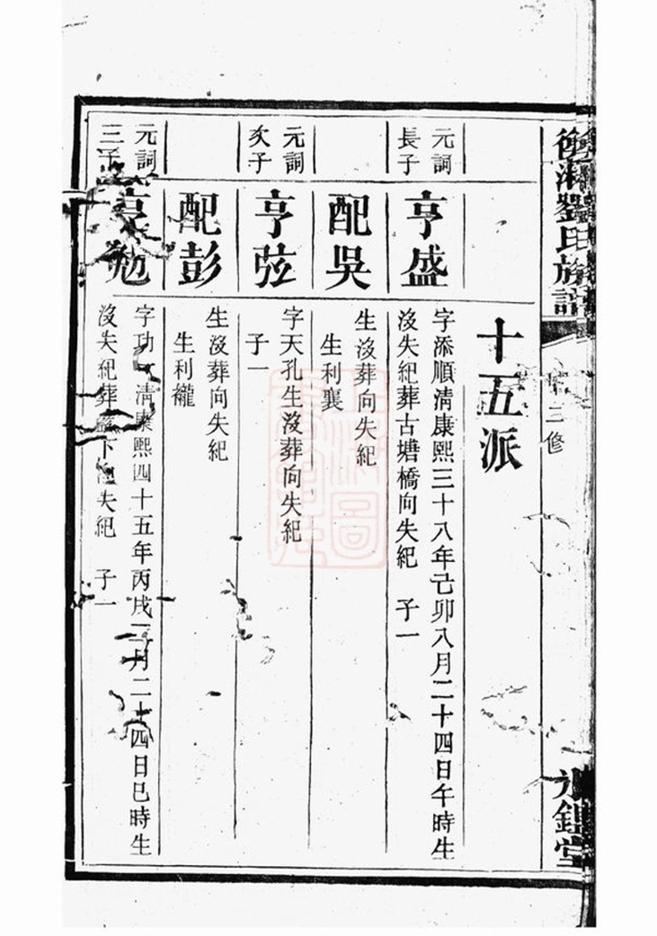 衡湘劉氏族譜
三修
永錦堂
十五派
元詞
長子
亨盛
字添順清康熙三十八年己卯八月二十四日午時生
沒失紀葬古塘橋向失紀 子一
配吳
生沒葬向失紀
生利襄
元詞
次子
亨弦
字天孔生沒葬向失紀
子一
配彭
生沒葬向失紀
生利
元詞
三子
亨勉
字功 清康熙四十五年丙戌 月二十四日巳時生
沒失紀葬 下 失紀 子一